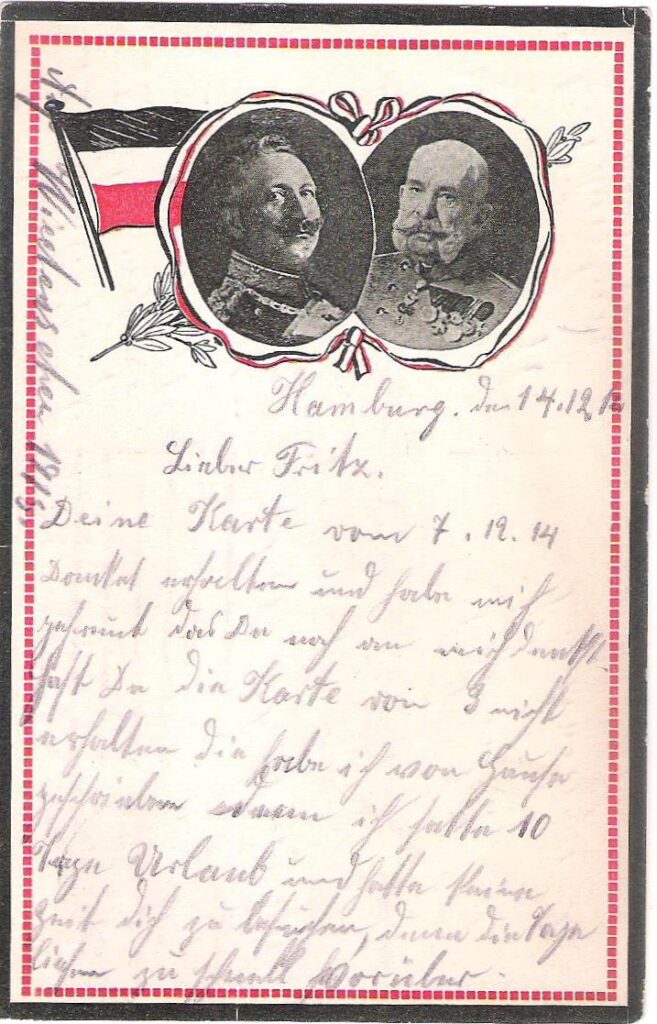 Hamburg. den 14.12.14
Lieber Fritz.
Deine Karte vom 7.12.14
Danket erhalten und habe mich
gefreut das Du noch an mich denkst.
hast Du die Karte von 3 nicht
erhalten die habe ich von Hause
geschrieben denn ich hatte 10
Tage Urlaub und hatte keine
Zeit dich zu besuchen, denn die Tage
liefen zu schnell vorüber.
1915.